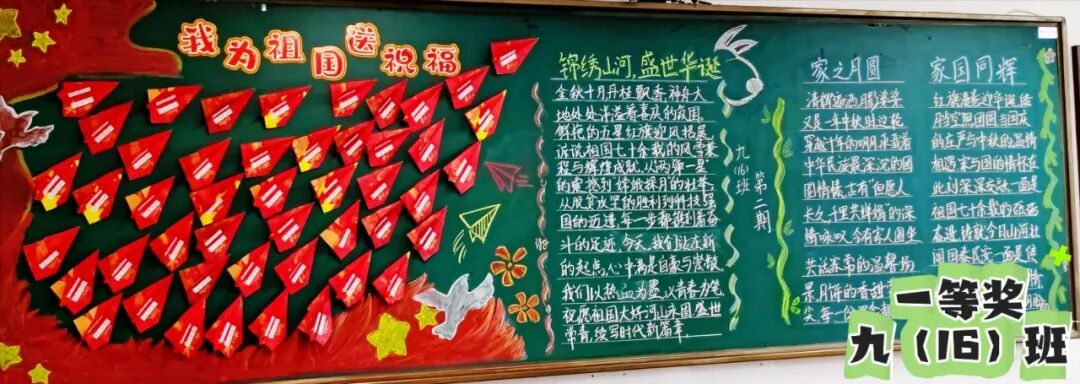 我为祖国送祝福
锦绣山河,盛世华诞
金秋十月丹桂飘香,神舟大
地处处洋溢着喜庆的氛围
鲜艳的五星红旗迎风招展
诉说祖国七十余载的风雪兼
程与辉煌成就,从两弹一星
的震撼到嫦娥探月的壮举
从脱贫攻坚的胜利到科技强
国的迈进,每一步都镌刻着奋
斗的足迹,今天,我们站在新
的起点,心中满是自豪与崇敬
我们以热血为墨,以青春为笔
祝愿祖国大好河山永固,盛世
常青,续写时代新篇章.
九(16)班 第二期
家之月圆
清辉
又是一年中秋时,这轮
穿越千年的明月,承载着
中华民族最深沉的团
圆情愫,古有"但愿人
长久,千里共婵娟"的深
情咏叹,今有家人围坐
共话家常的温馨场
景,月饼的香甜
尖,每一份
家国同辉
红旗漫卷迎华诞,皓
月当空照团圆,当国庆
的庄严与中秋的温情
相遇,家与国的情怀在
此刻深深交融,一面是
祖国七十余载的砥砺
奋进,铸就今日山河壮
阔,国泰民安,一面是传
一等奖
九(16)班